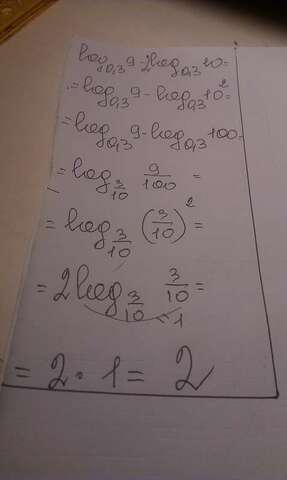 log₀,₃ 9 - 2log₀,₃ 10 =
= log₀,₃ 9 - log₀,₃ 10² =
= log₀,₃ 9 - log₀,₃ 100 =
= log_{3/10} 9/100 =
= log_{3/10} (3/10)² =
= 2log_{3/10} 3/10 =
= 1
= 2 · 1 = 2